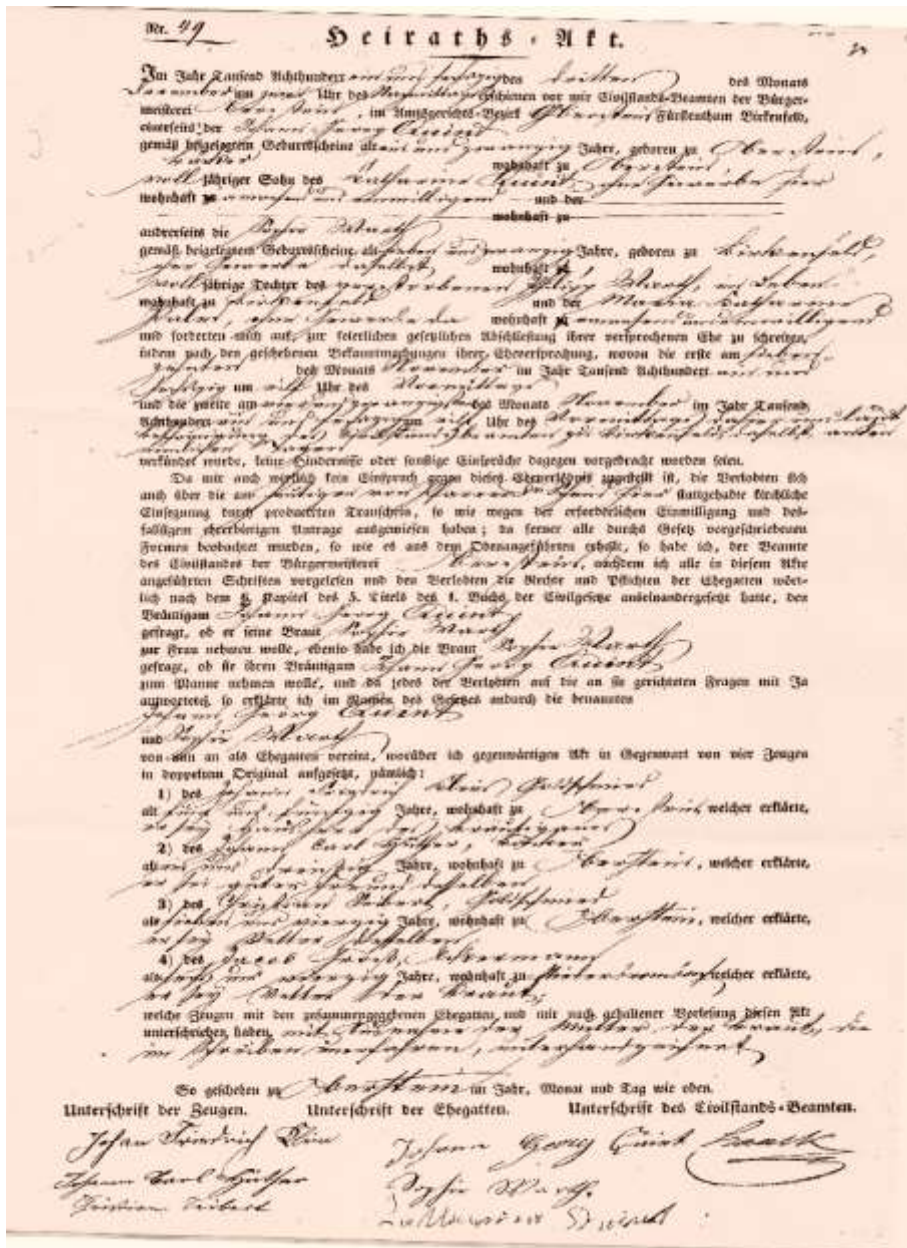 Nr. 49
Heiraths-Akt.
Im Jahr Tausend Achthundert ein und sechszig den dritten des Monats
December um zwei Uhr des Nachmittags erschienen vor mir Civilstands-Beamten der Bürger-
meisterei Oberstein, im Amtsgerichts-Bezirk Oberstein Fürstenthum Birkenfeld,
einerseits der Johann Georg Quint
gemäß beigelegtem Geburtsscheine alt ein und zwanzig Jahre, geboren zu Oberstein,
wohnhaft zu Oberstein
voll jähriger Sohn des Catharina Quint, ohne Gewerbe hier
wohnhaft zu anwesend und einwilligend und der
wohnhaft zu
andrerseits die Sophie Warth
gemäß beigelegtem Geburtsscheine alt sieben und zwanzig Jahre, geboren zu Birkenfeld,
ohne Gewerbe daselbst wohnhaft zu
voll jährige Tochter des verstorbenen Philipp Warth, im Leben
wohnhaft zu Birkenfeld und der Maria Catharina
ohne Gewerbe da wohnhaft zu anwesend und einwilligend
und forderten mich auf, zur feierlichen gesetzlichen Abschließung ihrer versprochenen Ehe zu schreiten,
indem nach den geschehenen Bekanntmachungen ihrer Eheversprechung, wovon die erste am sieben-
zehnten des Monats November im Jahr Tausend Achthundert ein und
sechszig um eilf Uhr des Vormittags
und die zweite am vier und zwanzigsten des Monats November im Jahr Tausend
Achthundert ein und sechszig um eilf Uhr des Vormittags, dahier und laut
Bescheinigung des Civilstandsbeamten zu Birkenfeld daselbst an den
nämlichen Tagen
verkündet wurde, keine Hindernisse oder sonstige Einsprüche dagegen vorgebracht worden seien.
Da mir auch wirklich kein Einspruch gegen dieses Eheverlöbniß zugestellt ist, die Verlobten sich
auch über die am heutigen von Pfarrer hier stattgehabte kirchliche
Einsegnung durch producirten Trauschein, so wie wegen der erforderlichen Einwilligung und des-
fallsigem ehrerbötigen Antrage ausgewiesen haben; da ferner alle durchs Gesetz vorgeschriebenen
Formen beobachtet wurden, so wie es aus dem Obenangeführten erhellt, so habe ich, der Beamte
des Civilstandes der Bürgermeisterei Oberstein, nachdem ich alle in diesem Akte
angeführten Schriften vorgelesen und den Verlobten die Rechte und Pflichten der Ehegatten wört-
lich nach dem 6. Kapitel des 5. Titels des 1. Buchs der Civilgesetze auseinandergesetzt hatte, den
Bräutigam Johann Georg Quint
gefragt, ob er seine Braut Sophie Warth
zur Frau nehmen wolle, ebenso habe ich die Braut Sophie Warth
gefragt, ob sie ihren Bräutigam Johann Georg Quint
zum Manne nehmen wolle, und da jedes der Verlobten auf die an sie gerichteten Fragen mit Ja
antwortete, so erklärte ich im Namen des Gesetzes andurch die benannten
Johann Georg Quint
und Sophie Warth
von nun an als Ehegatten vereint, worüber ich gegenwärtigen Akt in Gegenwart von vier Zeugen
in doppeltem Original aufgesetzt, nämlich:
1) des Johann Friedrich Klein Goldschmied
alt fünf und fünfzig Jahre, wohnhaft zu Oberstein, welcher erklärte,
er sey Hausherr des Bräutigams
2) des Johann Carl Hüther,
alt und dreißig Jahre, wohnhaft zu Oberstein, welcher erklärte,
er sei guter Freund desselben
3) des Christian Seibert, Goldschmied
alt sieben und vierzig Jahre, wohnhaft zu Oberstein, welcher erklärte,
er sey Vetter desselben
4) des Jacob Ackermann
alt sechs und vierzig Jahre, wohnhaft zu welcher erklärte,
er sey Vetter der Braut,
welche Zeugen mit den zusammengegebenen Ehegatten und mir nach gehaltener Vorlesung diesen Akt
unterschrieben haben, mit Ausnahme der Mutter der Braut, die
im Schreiben unerfahren, unterhandzeichnet
So geschehen zu Oberstein im Jahr, Monat und Tag wie oben.
Unterschrift der Zeugen. Unterschrift der Ehegatten. Unterschrift des Civilstands-Beamten.
Johan Friedrich Klein
Johann Georg Quint
Johann Carl Hüther
Sophie Warth.
Christian Seibert